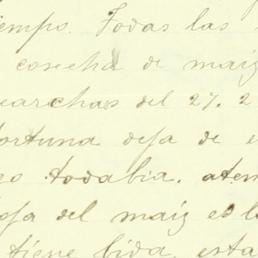 iempo. Todas las
cosecha de maiz
marchas del 27. 2
fortuna deja de
todabia. aten
oja del maiz es l
tiene bida, esta